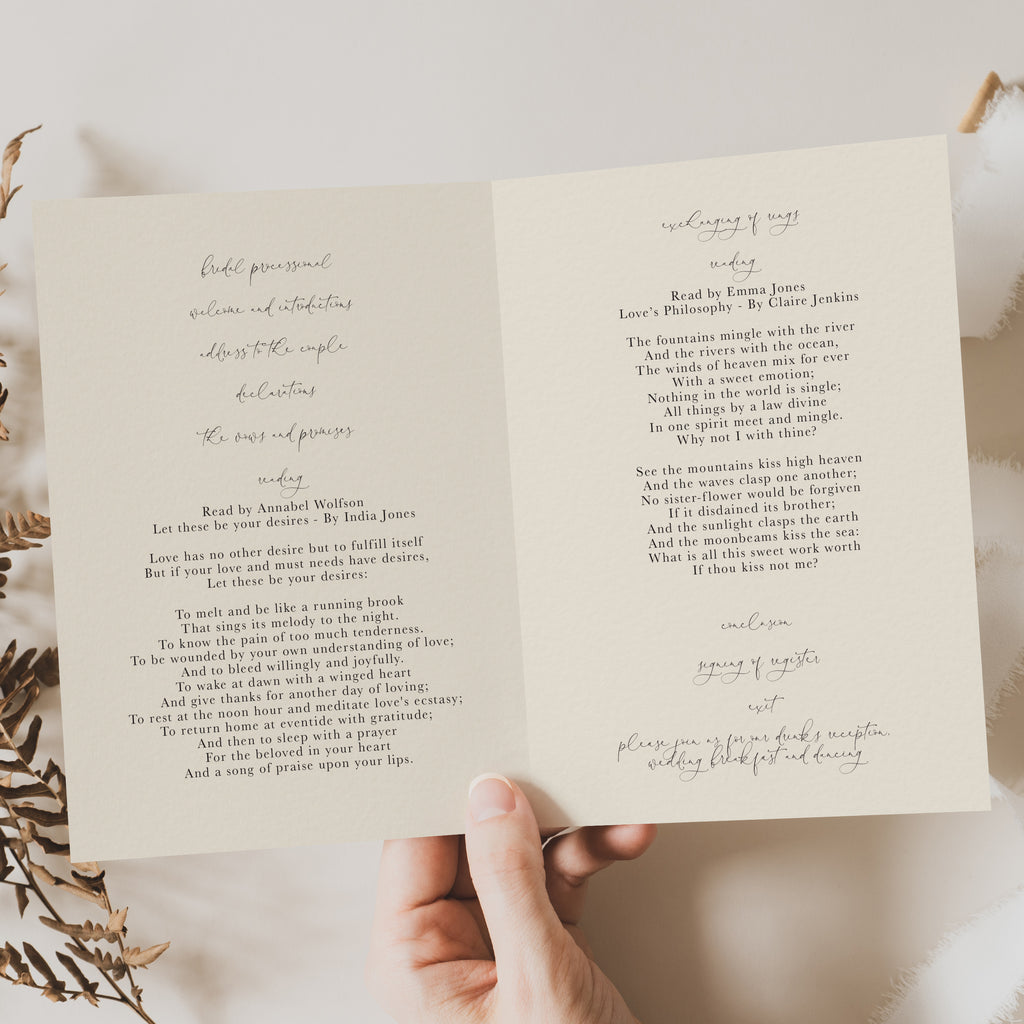 bridal processional
welcome and introductions
address to the couple
declarations
the vows and promises
reading
Read by Annabel Wolfson
Let these be your desires - By India Jones
Love has no other desire but to fulfill itself
But if your love and must needs have desires,
Let these be your desires:
To melt and be like a running brook
That sings its melody to the night.
To know the pain of too much tenderness.
To be wounded by your own understanding of love;
And to bleed willingly and joyfully.
To wake at dawn with a winged heart
And give thanks for another day of loving;
To rest at the noon hour and meditate love's ecstasy;
To return home at eventide with gratitude;
And then to sleep with a prayer
For the beloved in your heart
And a song of praise upon your lips.
exchanging of rings
reading
Read by Emma Jones
Love's Philosophy - By Claire Jenkins
The fountains mingle with the river
And the rivers with the ocean,
The winds of heaven mix for ever
With a sweet emotion;
Nothing in the world is single;
All things by a law divine
In one spirit meet and mingle.
Why not I with thine?
See the mountains kiss high heaven
And the waves clasp one another;
No sister-flower would be forgiven
If it disdained its brother;
And the sunlight clasps the earth
And the moonbeams kiss the sea:
What is all this sweet work worth
If thou kiss not me?
conclusion
signing of register
exit
please join us for our drinks reception,
wedding breakfast and dancing